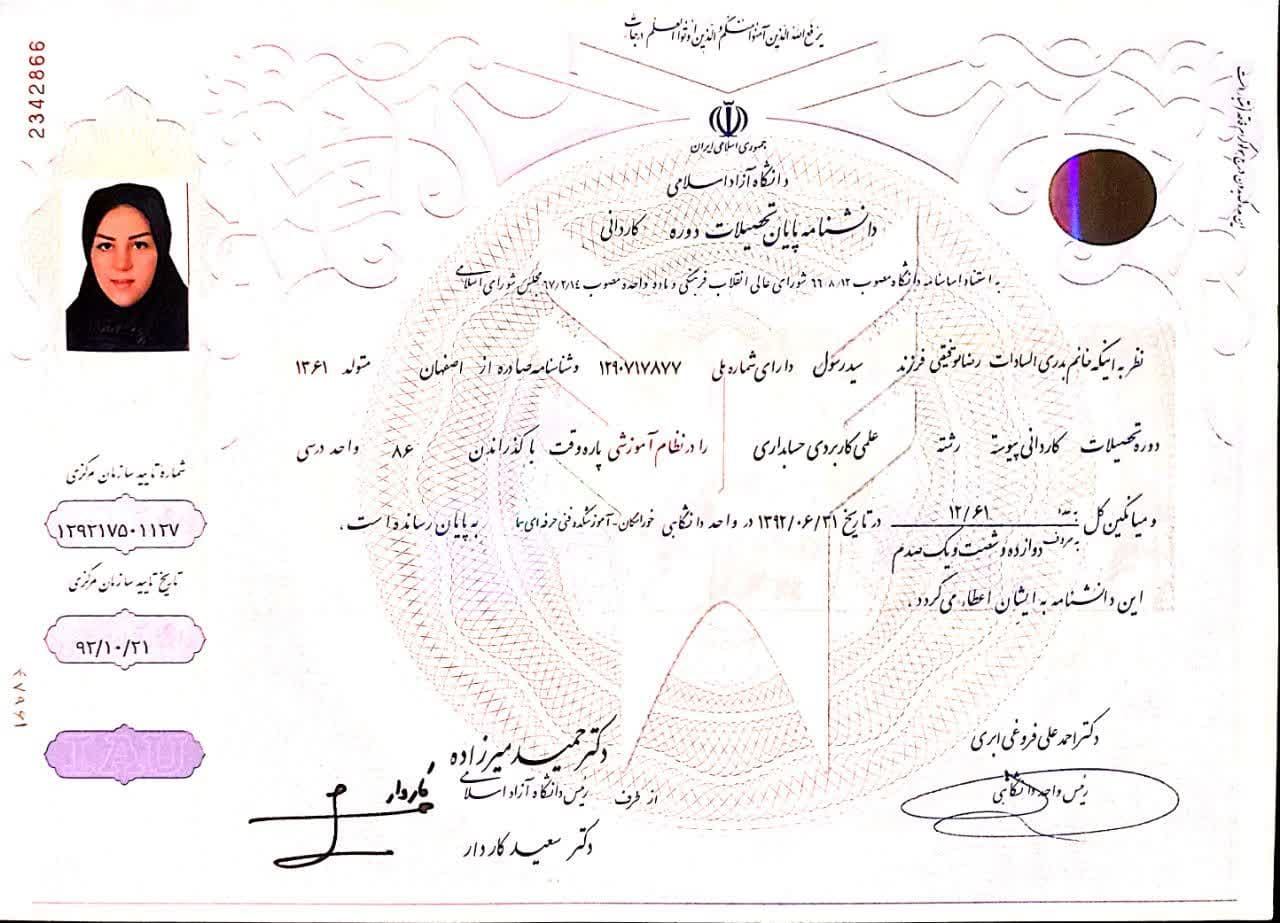 یرفع الله الذین آمنوا منکم و الذین اوتوا العلم درجات
2342866
جمهوری اسلامی ایران
دانشگاه آزاد اسلامی
دانشنامه پایان تحصیلات دوره کاردانی
به استناد اساسنامه دانشگاه مصوب ٦٦/٨/١٢ شورای عالی انقلاب فرهنگی و ماده واحده مصوب ٦٧/٢/١٤ مجلس شورای اسلامی
نظر به اینکه خانم بدری السادات رضا توفیقی فرزند سید رسول دارای شماره ملی ۱۲۹۰۷۱۷۸۷۷ و شناسنامه صادره از اصفهان متولد ۱۳۶۱
دوره تحصیلات کاردانی پیوسته رشته علمی کاربردی حسابداری را در نظام آموزشی پاره وقت با گذراندن ۸۶ واحد درسی
و میانگین کل به عدد ۱۲/۶۱ در تاریخ ۱۳۹۲/۰۶/۳۱ در واحد دانشگاهی خوراسگان-آموزشکده فنی حرفه ای سما به پایان رسانده است.
به حروف دوازده و شصت و یک صدم
این دانشنامه به ایشان اعطاء می گردد.
شماره تایید سازمان مرکزی
۱۲۹۲۱۷۵۰۱۱۲۷
تاریخ تایید سازمان مرکزی
۹۲/۱۰/۲۱
IAU
دکتر احمد علی فروغی ابری
رئیس واحد دانشگاهی
دکتر حمید میرزاده
رئیس دانشگاه آزاد اسلامی
از طرف
دکتر سعید کاردار
کاردار